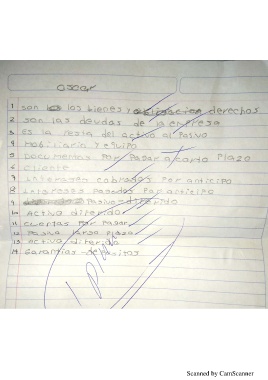 oscar
1 son los bienes y obligacion derechos
2 son las deudas de la empresa
3 Es la resta del activo al Pasivo
4 mobiliario y equipo
5 Documentos Por Pagar a corto Plazo
6 cliente
7 intereses cobrados Por anticipo
8 intereses Pagados Por anticipo
9 Pasivo diferido
10 Activo diferido
11 cuentas Por Pagar
12 Pasivo largo Plazo
13 activo diferido
14 Garantias
Scanned by CamScanner